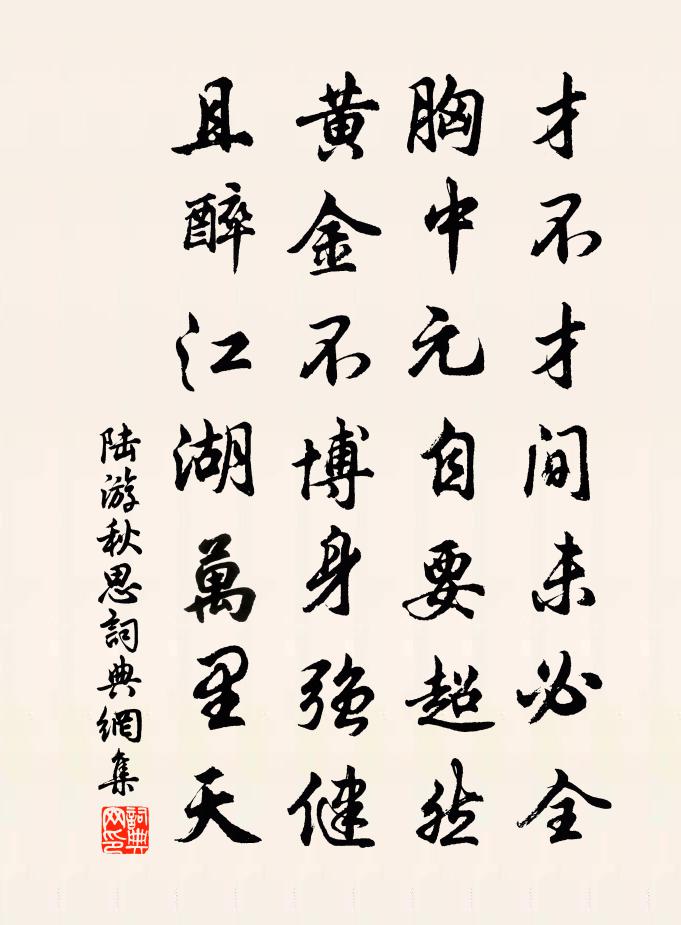 才不才間未必全
胸中元自要超然
黄金不博身强健
且醉江湖萬里天
陆游秋思詞典網集
詞典网印